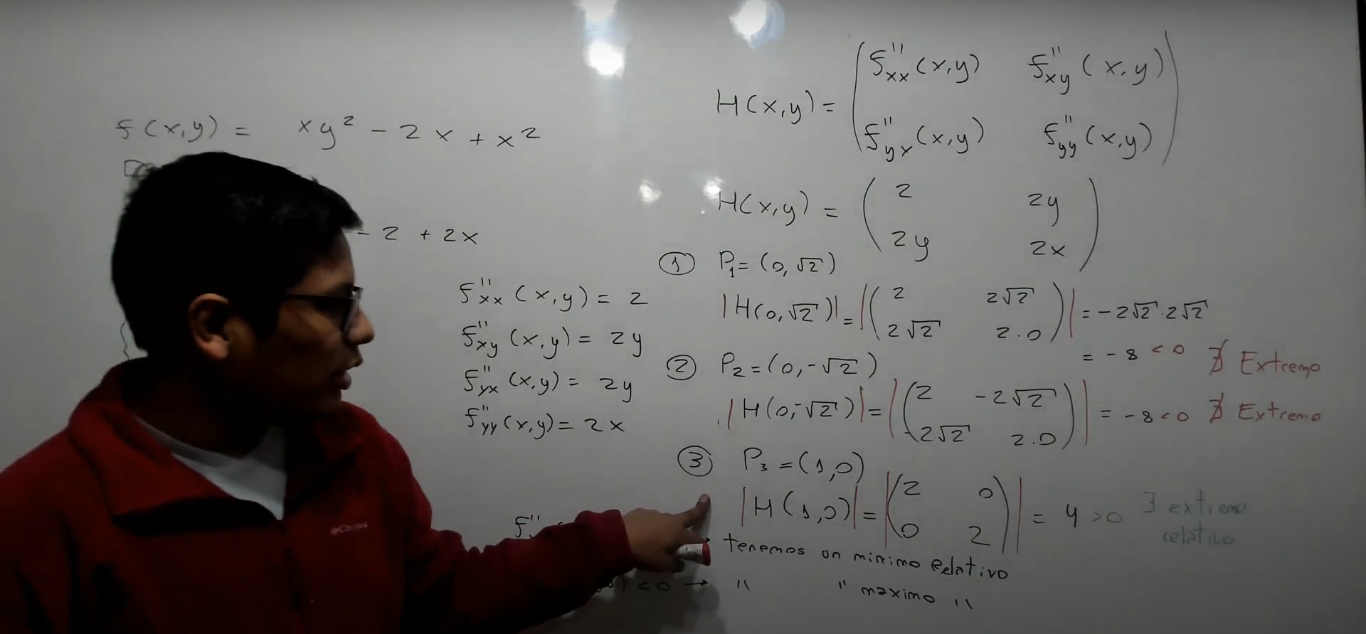 f(x,y) = xy² - 2x + x²
- 2 + 2x
f''xx (x,y) = 2
f''xy (x,y) = 2y
f''yx (x,y) = 2y
f''yy (x,y) = 2x
H(x,y) = ( f''xx (x,y) f''xy (x,y)
f''yx (x,y) f''yy (x,y) )
H(x,y) = ( 2 2y
2y 2x )
① P₁ = (0, √2)
|H(0, √2)| = |( 2 2√2
2√2 2·0 )| = -2√2·2√2
= -8 < 0 ∄ Extremo
② P₂ = (0, -√2)
|H(0, -√2)| = |( 2 -2√2
-2√2 2·0 )| = -8 < 0 ∄ Extremo
③ P₃ = (1,0)
|H(1,0)| = |( 2 0
0 2 )| = 4 > 0 ∃ extremo
relativo
tenemos un minimo relativo
< 0 → '' '' maximo ''
Columbia